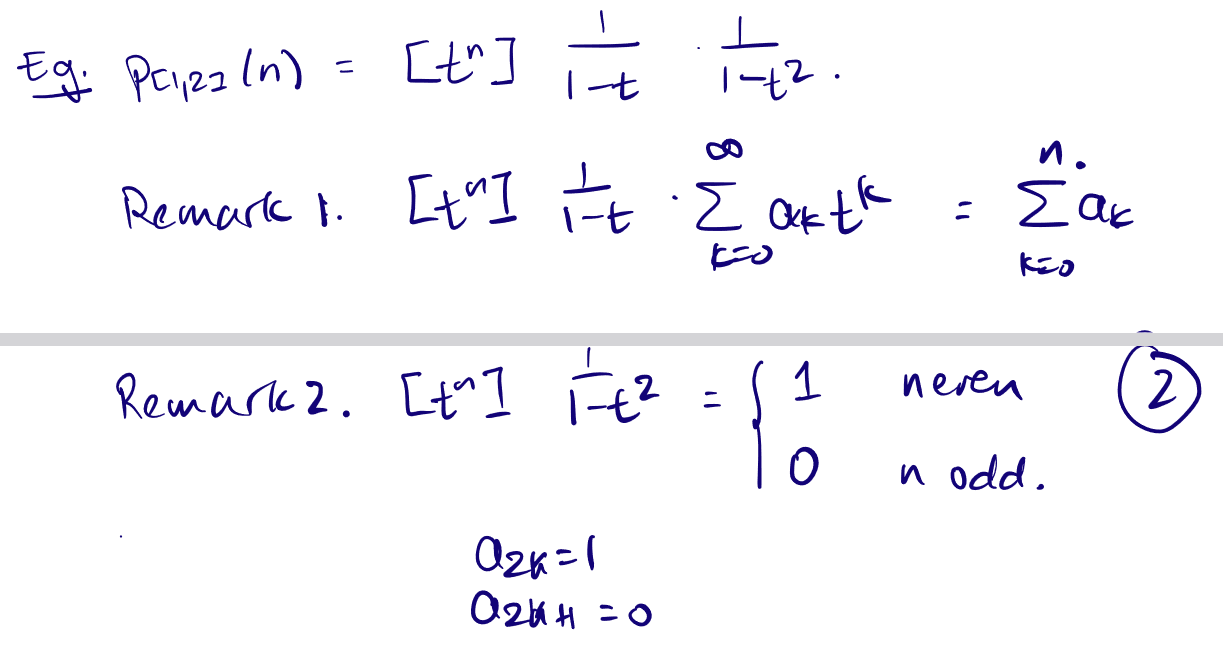 Eg. p_{[1,2]}(n) = [t^n] \frac{1}{1-t} \cdot \frac{1}{1-t^2}.
Remark 1. [t^n] \frac{1}{1-t} \cdot \sum_{k=0}^{\infty} a_k t^k = \sum_{k=0}^{n} a_k
Remark 2. [t^n] \frac{1}{1-t^2} = \begin{cases} 1 & n even \\ 0 & n odd. \end{cases} ②
a_{2k} = 1
a_{2k+1} = 0